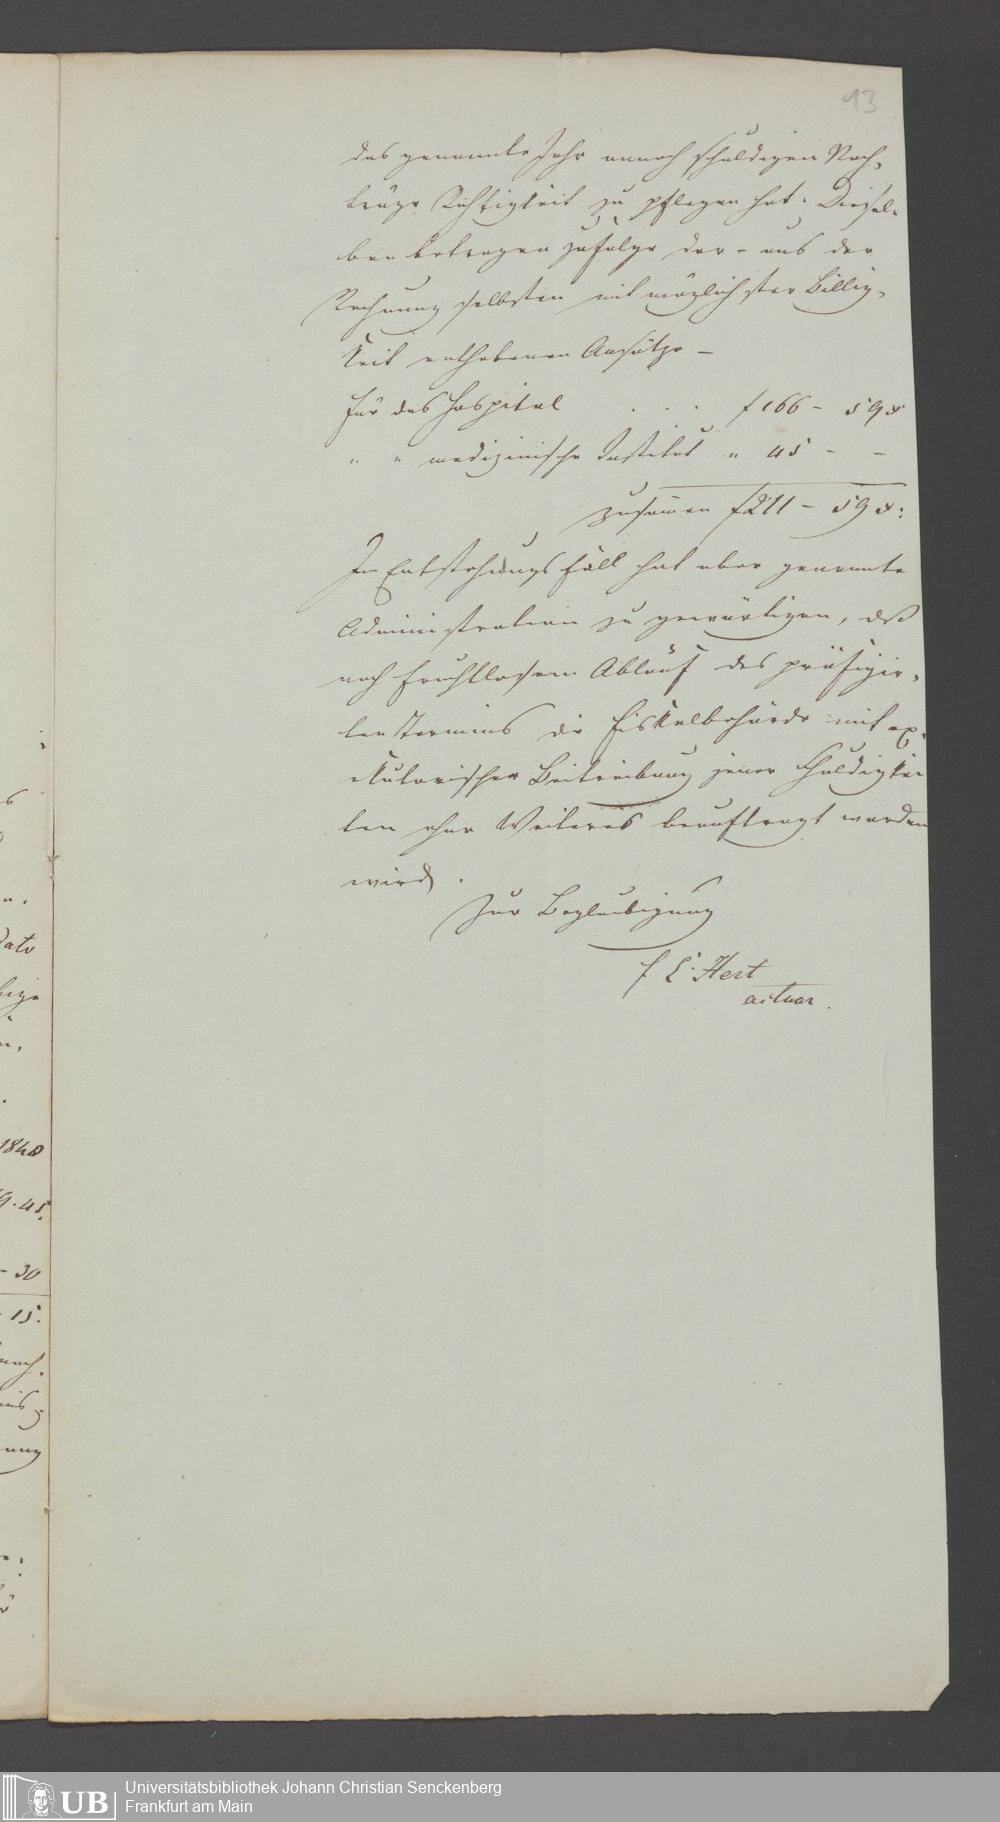 13
das genannte Jahr annoch schuldigen Nach-
träge Richtigkeit zu pflegen hat. Diesel-
ben betragen zufolge der - aus der
Rechnung selbsten mit möglichster Billig-
keit enthobenen Ansätze -
für das Hospital . . . f 166 - 59 x
" " medizinische Institut " 45 - -
zusamen f 211 - 59 x:
Im Entstehungsfall hat aber genannte
Administration zu gewärtigen, daß
nach fruchtlosem Ablauf des präfigir-
ten Termins die Fiskalbehörde mit ex-
ekutorischer Beitreibung jener Schuldigkei
ten ohne Weiteres beauftragt werden
wird.
Zur Beglaubigung
Hert
actuar.
dato
1848
9. 45.
- 30
15.
Universitätsbibliothek Johann Christian Senckenberg
Frankfurt am Main
UB